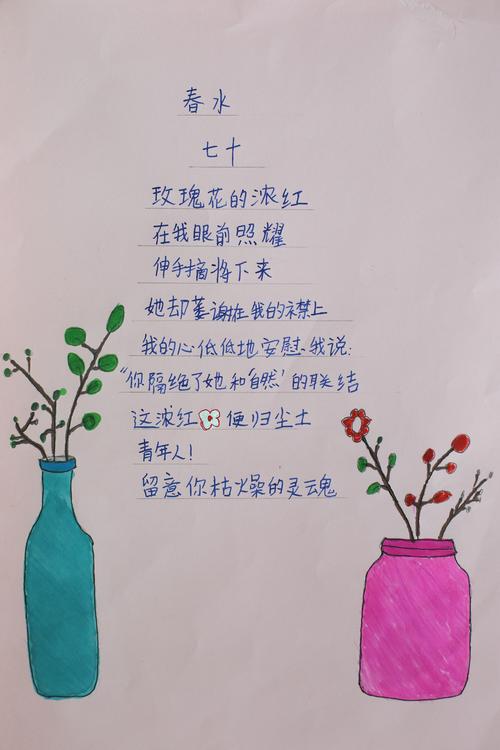 春水
七十
玫瑰花的浓红
在我眼前照耀
伸手摘将下来
她却萎谢在我的襟上
我的心低低地安慰我说:
“你隔绝了她和‘自然’的联结
这浓红便归尘土
青年人!
留意你枯燥的灵魂